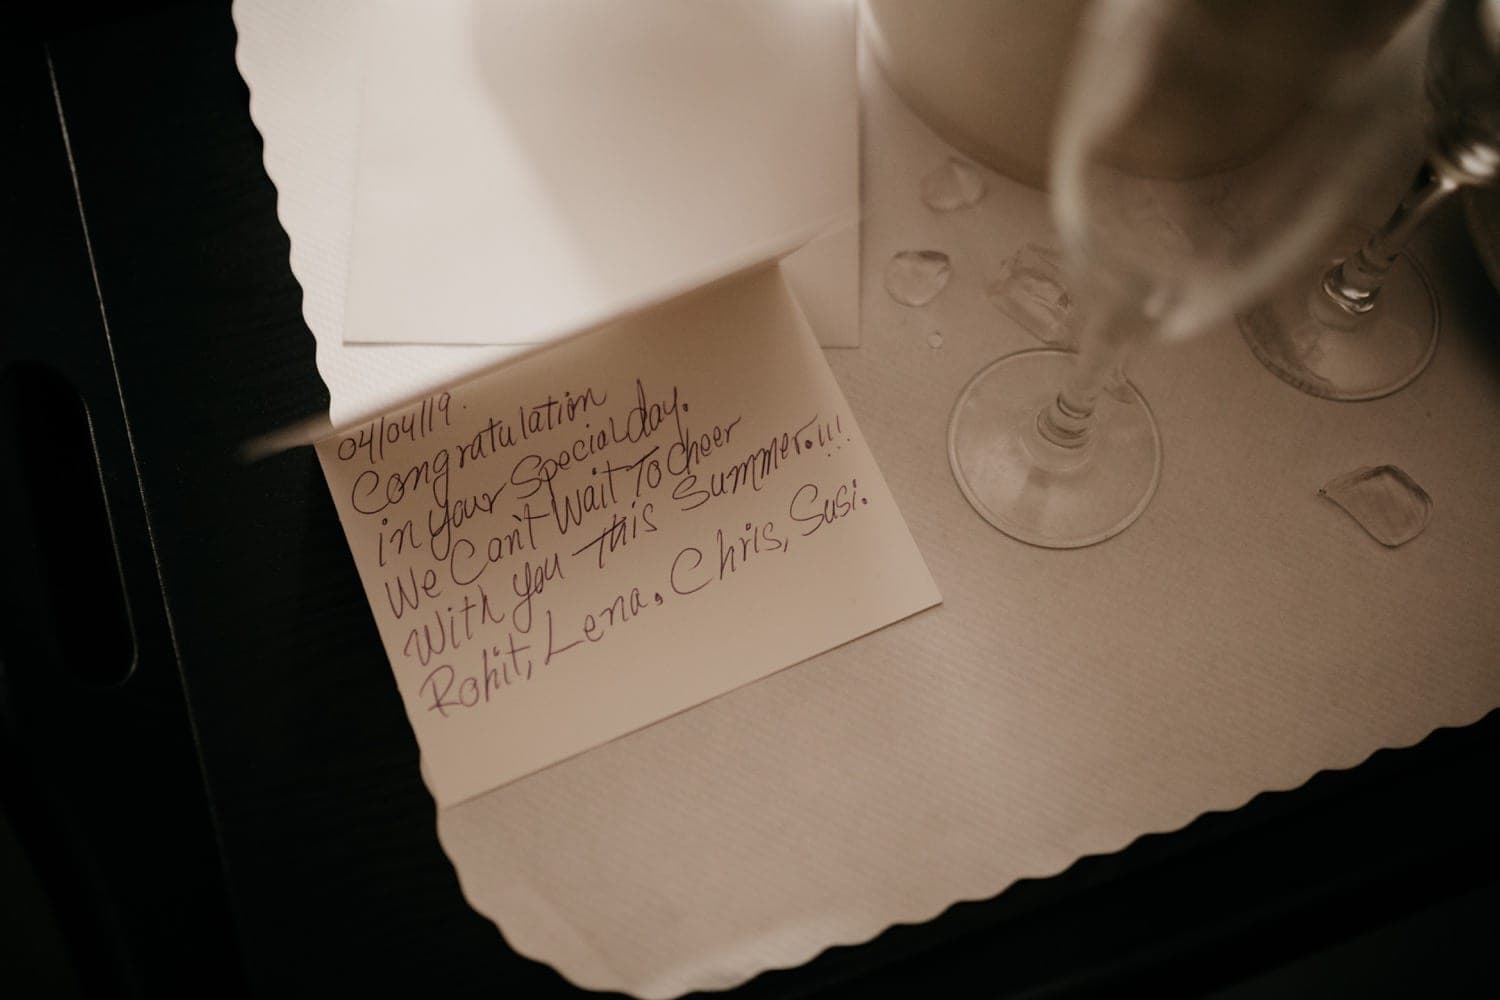 04/04/19.
Congratulation
in your Special day.
We Can't Wait To cheer
With you This Summer.!!!
Rohit, Lena. Chris, Susi.